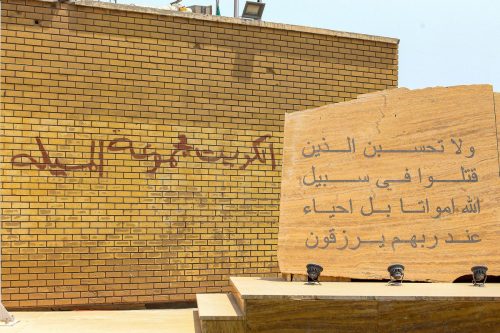 الكويت مجموعة المسيله
ولا تحسبن الذين
قتلوا في سبيل
الله امواتا بل احياء
عند ربهم يرزقون